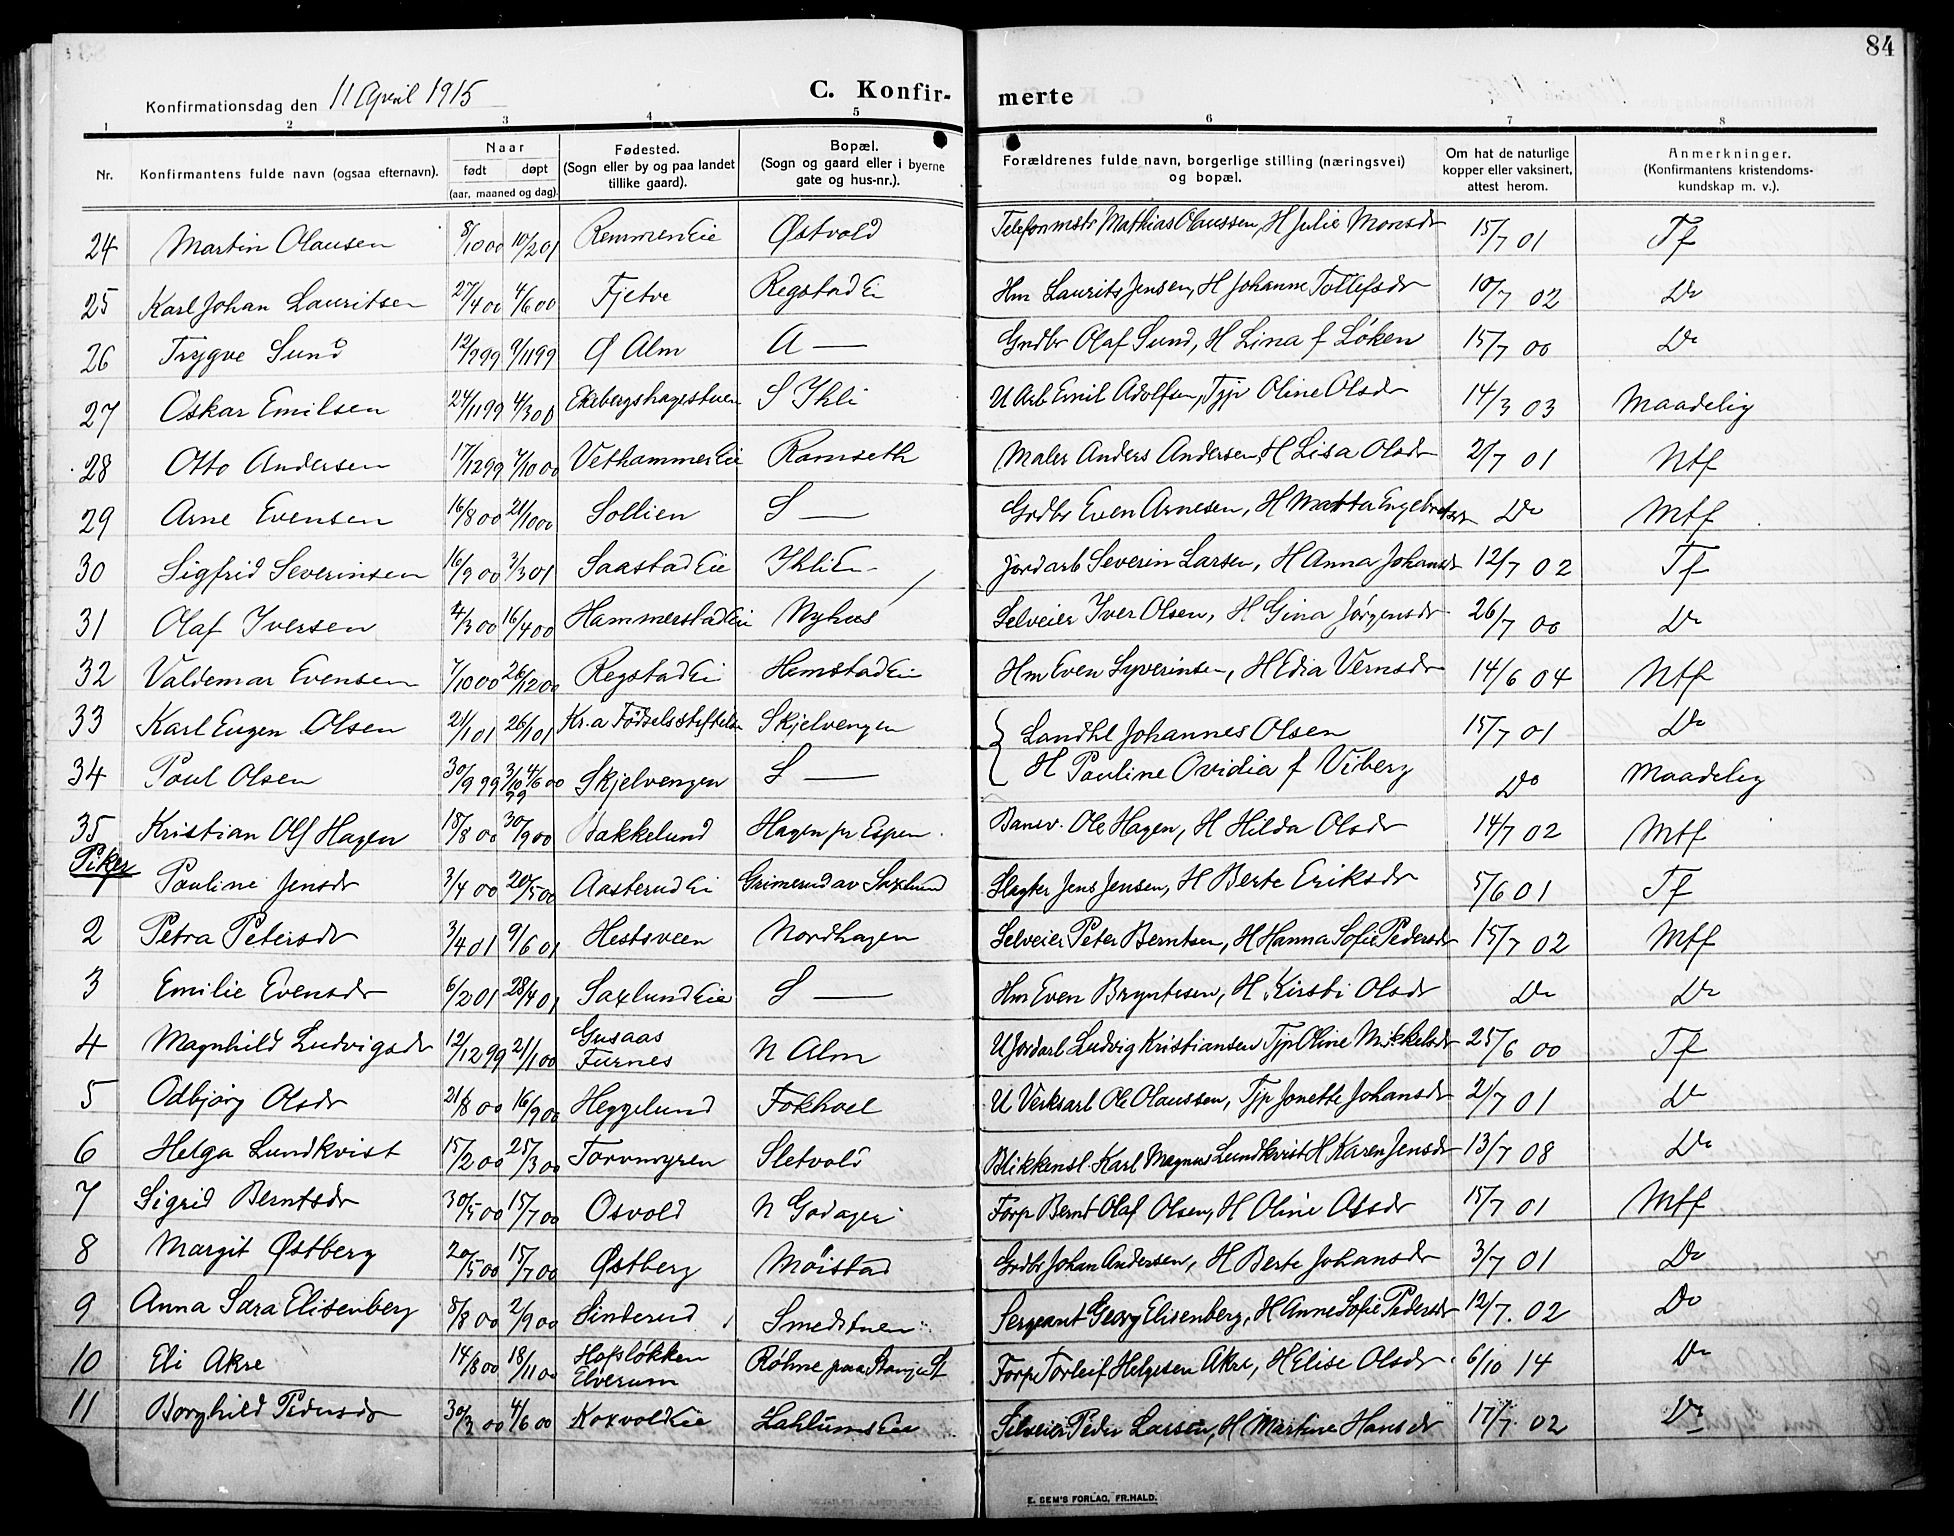 84
Konfirmationsdag den 11 April 1915
C. Konfir- merte
1 2 3 4 5 6 7 8
Nr. Konfirmantens fulde navn (ogsaa efternavn). Naar født døpt (aar, maaned og dag). Fødested. (Sogn eller by og paa landet tillike gaard). Bopæl. (Sogn og gaard eller i byerne gate og hus-nr.). Forældrenes fulde navn, borgerlige stilling (næringsvei) og bopæl. Om hat de naturlige kopper eller vaksinert, attest herom. Anmerkninger. (Konfirmantens kristendoms- kundskap m. v.).
24 Martin Olausen 8/10 00 10/2 01 Remmen Eie Østvold Telefonmstr Mathias Olaussen, H Julie Monsdr 15/7 01 Tf
25 Karl Johan Lauritsen 27/4 00 4/6 00 Fjetve Regstad Ei Hm Laurits Jensen, H Johanne Tollefsdr 10/7 02 Do
26 Trygve Sund 12/9 99 9/11 99 Ø Alm A — Grdbr Olaf Sund, H Lina f Løken 15/7 00 Do
27 Oskar Emilsen 24/11 99 4/3 00 Ekebergshagestuen S Ihli U Arb Emil Adolfsen, Tjp Oline Olsdr 14/3 03 Maadelig
28 Otto Andersen 17/12 99 7/10 00 Vethammer Eie Ramseth Maler Anders Andersen, H Lisa Olsdr 2/7 01 Ntf
29 Arne Evensen 16/8 00 21/10 00 Sollien S — Grdbr Even Arnesen, H Martta Engebretsdr Do Mtf
30 Sigfrid Severinsen 16/3 00 3/3 01 Saastad Eie Ihli E Jordarb Severin Larsen, H Anna Johansdr 12/7 02 Tf
31 Olaf Iversen 4/3 00 16/4 00 Hammerstad Eie Nyhus Selveier Iver Olsen, H Gina Jørgensdr 26/7 00 Do
32 Valdemar Evensen 7/10 00 26/12 00 Regstad Ei Hemstad Ei Hm Even Syverinsen, H Edia Vernsdr 14/6 04 Ntf
33 Karl Eugen Olsen 21/1 01 26/1 01 Kr.a Fødselsstiftelse Skjelvengen { Landhl Johannes Olsen 15/7 01 Do
34 Paul Olsen 30/9 99 3/10 99 4/6 00 Skjelvengen S — H Pauline Ovidia f Viberg Do Maadelig
35 Kristian Olf Hagen 18/8 00 30/9 00 Nakkelund Hagen pr Espen. Banev. Ole Hagen, H Hilda Olsdr 14/7 02 Mtf
Piker
1 Pauline Jensdr 3/4 00 20/5 00 Aasterud Ei Grimerud av Saxlund Slagter Jens Jensen, H Berte Eriksdr 5/6 01 Tf
2 Petra Petersdr 3/4 01 9/6 01 Hestsveen Nordhagen Selveier Peter Berntsen, H Hanna Sofie Pedersdr 15/7 02 Mtf
3 Emilie Evensdr 6/2 01 28/4 01 Saxlund Eie S — Hm Even Bryntesen, H Kirsti Olsdr Do Do
4 Magnhild Ludvigsdr 12/12 99 21/1 00 Gusaas Furnes N Alm U Jordarb Ludvig Kristiansen Tjp Oline Mikkelsdr 25/6 00 Tf
5 Odbjørg Olsdr 21/8 00 16/9 00 Heggelund Fokhoel U Verksarb Ole Olaussen, Tjp Jonette Johansdr 2/7 01 Do
6 Helga Lundkvist 15/2 00 25/3 00 Torvmyren Sletvold Blikkensl. Karl Magnus Lundkvist H Karen Jensdr 13/7 08 Do
7 Sigrid Berntsdr 30/5 00 15/7 00 Osvold N Godager Forp Bernt Olaf Olsen, H Oline Olsdr 15/7 01 Mtf
8 Margit Østberg 20/5 00 15/7 00 Østberg Møistad Grdbr Johan Andersen, H Berte Johansdr 3/7 01 Do
9 Anna Sara Elisenberg 8/8 00 2/9 00 Sinterud Smedstuen Sergeant Georg Elisenberg, H Anne Sofie Pedersdr 12/7. 02 Do
10 Eli Akre 14/8 00 18/11 00 Hofsløkken Elverum Røhne paa Stange St Forp Torleif Helgesen Akre, H Elise Olsdr 6/10 14 Do
11 Borghild Pedersdr 30/3 00 4/6 00 Koxvold Eie Lahlums Eie Selveier Peder Larsen, H Martine Hansdr 17/7 02 Do
E. SEM'S FORLAG, FR.HALD.